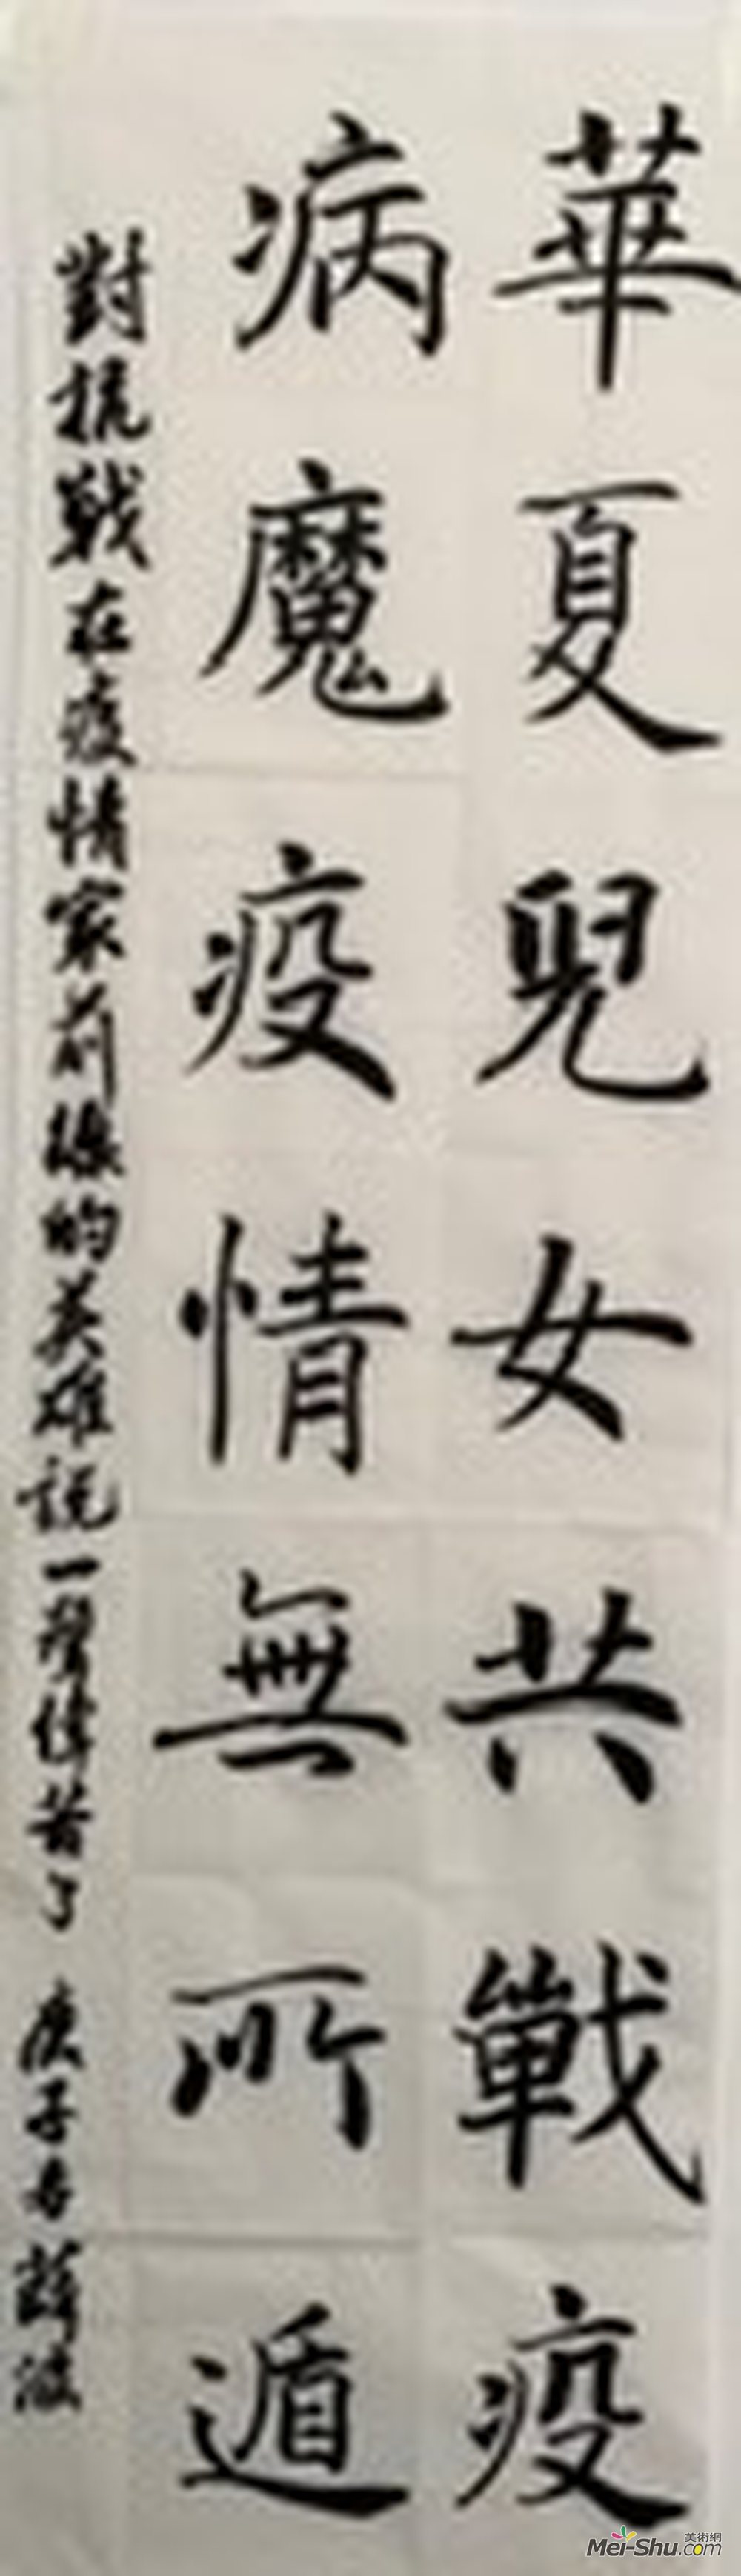 華夏兒女共戰疫
病魔疫情無所遁
對抗戰在疫情最前線的英雄說一聲偉苦了 庚子春 薛波
Mei-Shu.com 美術網